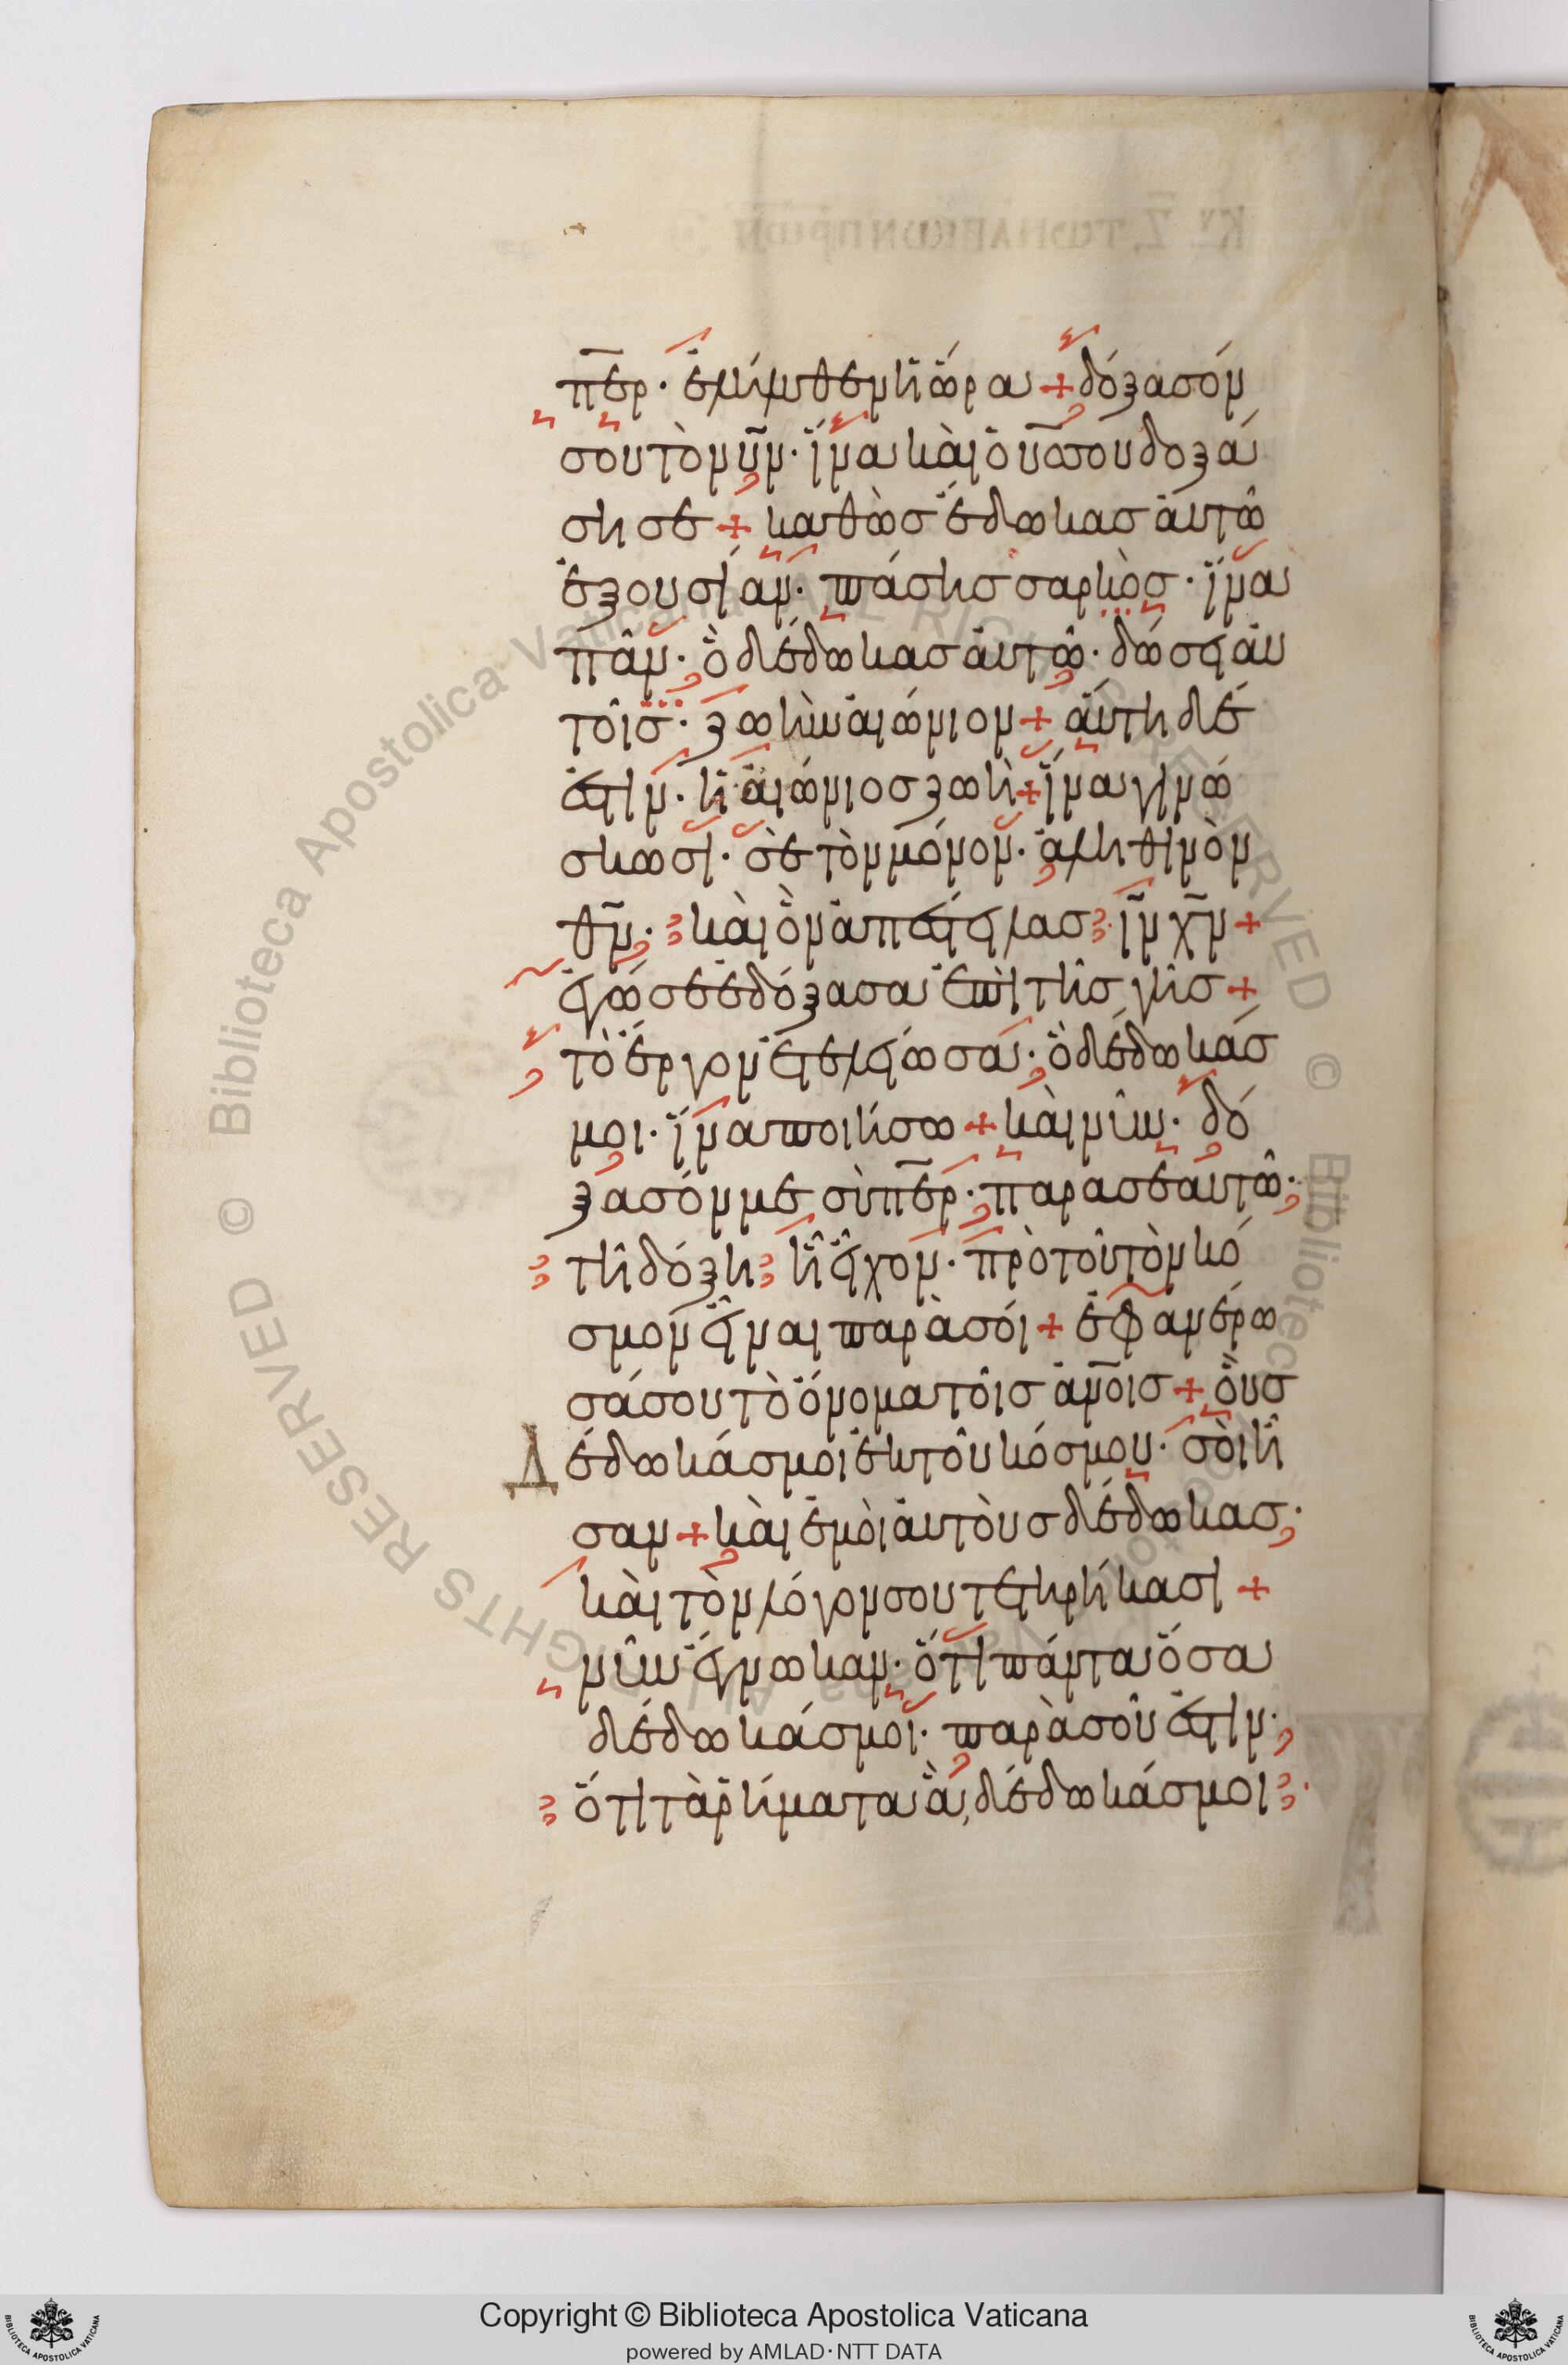 πε̅ρ· ἐλήλυθεν ἡ ὥρα + δόξασόν
σου τὸν υ̅ν· ἵνα καὶ ὁ υ̅σ σου δοξά
σησε + καθὼσ ἔδωκασ αὐτῶ
ἐξουσίαν· πάσησ σαρκὸσ· ἵνα
πᾶν· ὃ δέδωκασ αὐτῶ· δώσει αὐ
τοῖσ· ζωὴν αἰώνιον + αὕτη δέ
ἐστιν· ἡ αἰώνιοσ ζωὴ + ἵνα γινώ
σκωσι· σὲ τὸν μόνον· ἀληθινὸν
θ̅ν· καὶ ὃν ἀπέστειλασ· ι̅ν χ̅ν +
ἐγώ σε ἐδόξασα ἐπὶ τῆσ γῆσ +
τὸ ἔργον ἐτελείωσα· ὃ δέδωκάσ
μοι· ἵνα ποιήσω + καὶ νῦν· δό
ξασόν με σὺ πε̅ρ· παρα σεαυτῶ·
τῆ δόξη ἧ εἶχον· πρὸ τοῦ τὸν κό
σμον εἶναι παρὰ σοί + ἐφανέρω
σά σου τὸ ὄνομα τοῖσ ἀν̅οισ + οὓσ
δέδωκάσ μοι ἐκ τοῦ κόσμου· σοὶ ἦ
σαν + καὶ ἐμοὶ αὐτοὺσ δέδωκασ·
καὶ τὸν λόγον σου τετηρήκασι +
νῦν ἔγνωκαν· ὅτι πάντα ὅσα
δέδωκάσ μοι· παρὰ σοῦ ἐστιν·
ὅτι τὰ ῥήματα ἃ δέδωκάσ μοι
Copyright © Biblioteca Apostolica Vaticana
powered by AMLAD·NTT DATA